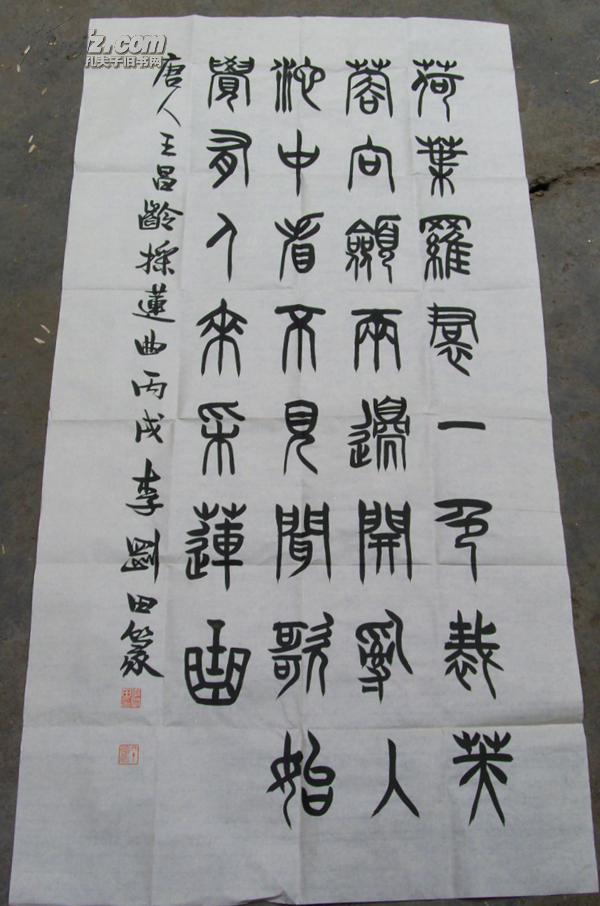 荷葉羅裙一色裁芙
蓉向臉兩邊開亂入
池中看不見聞歌始
覺有人來采蓮曲
唐人王昌齡採蓮曲丙戌李剛田篆
z.com
孔夫子旧书网